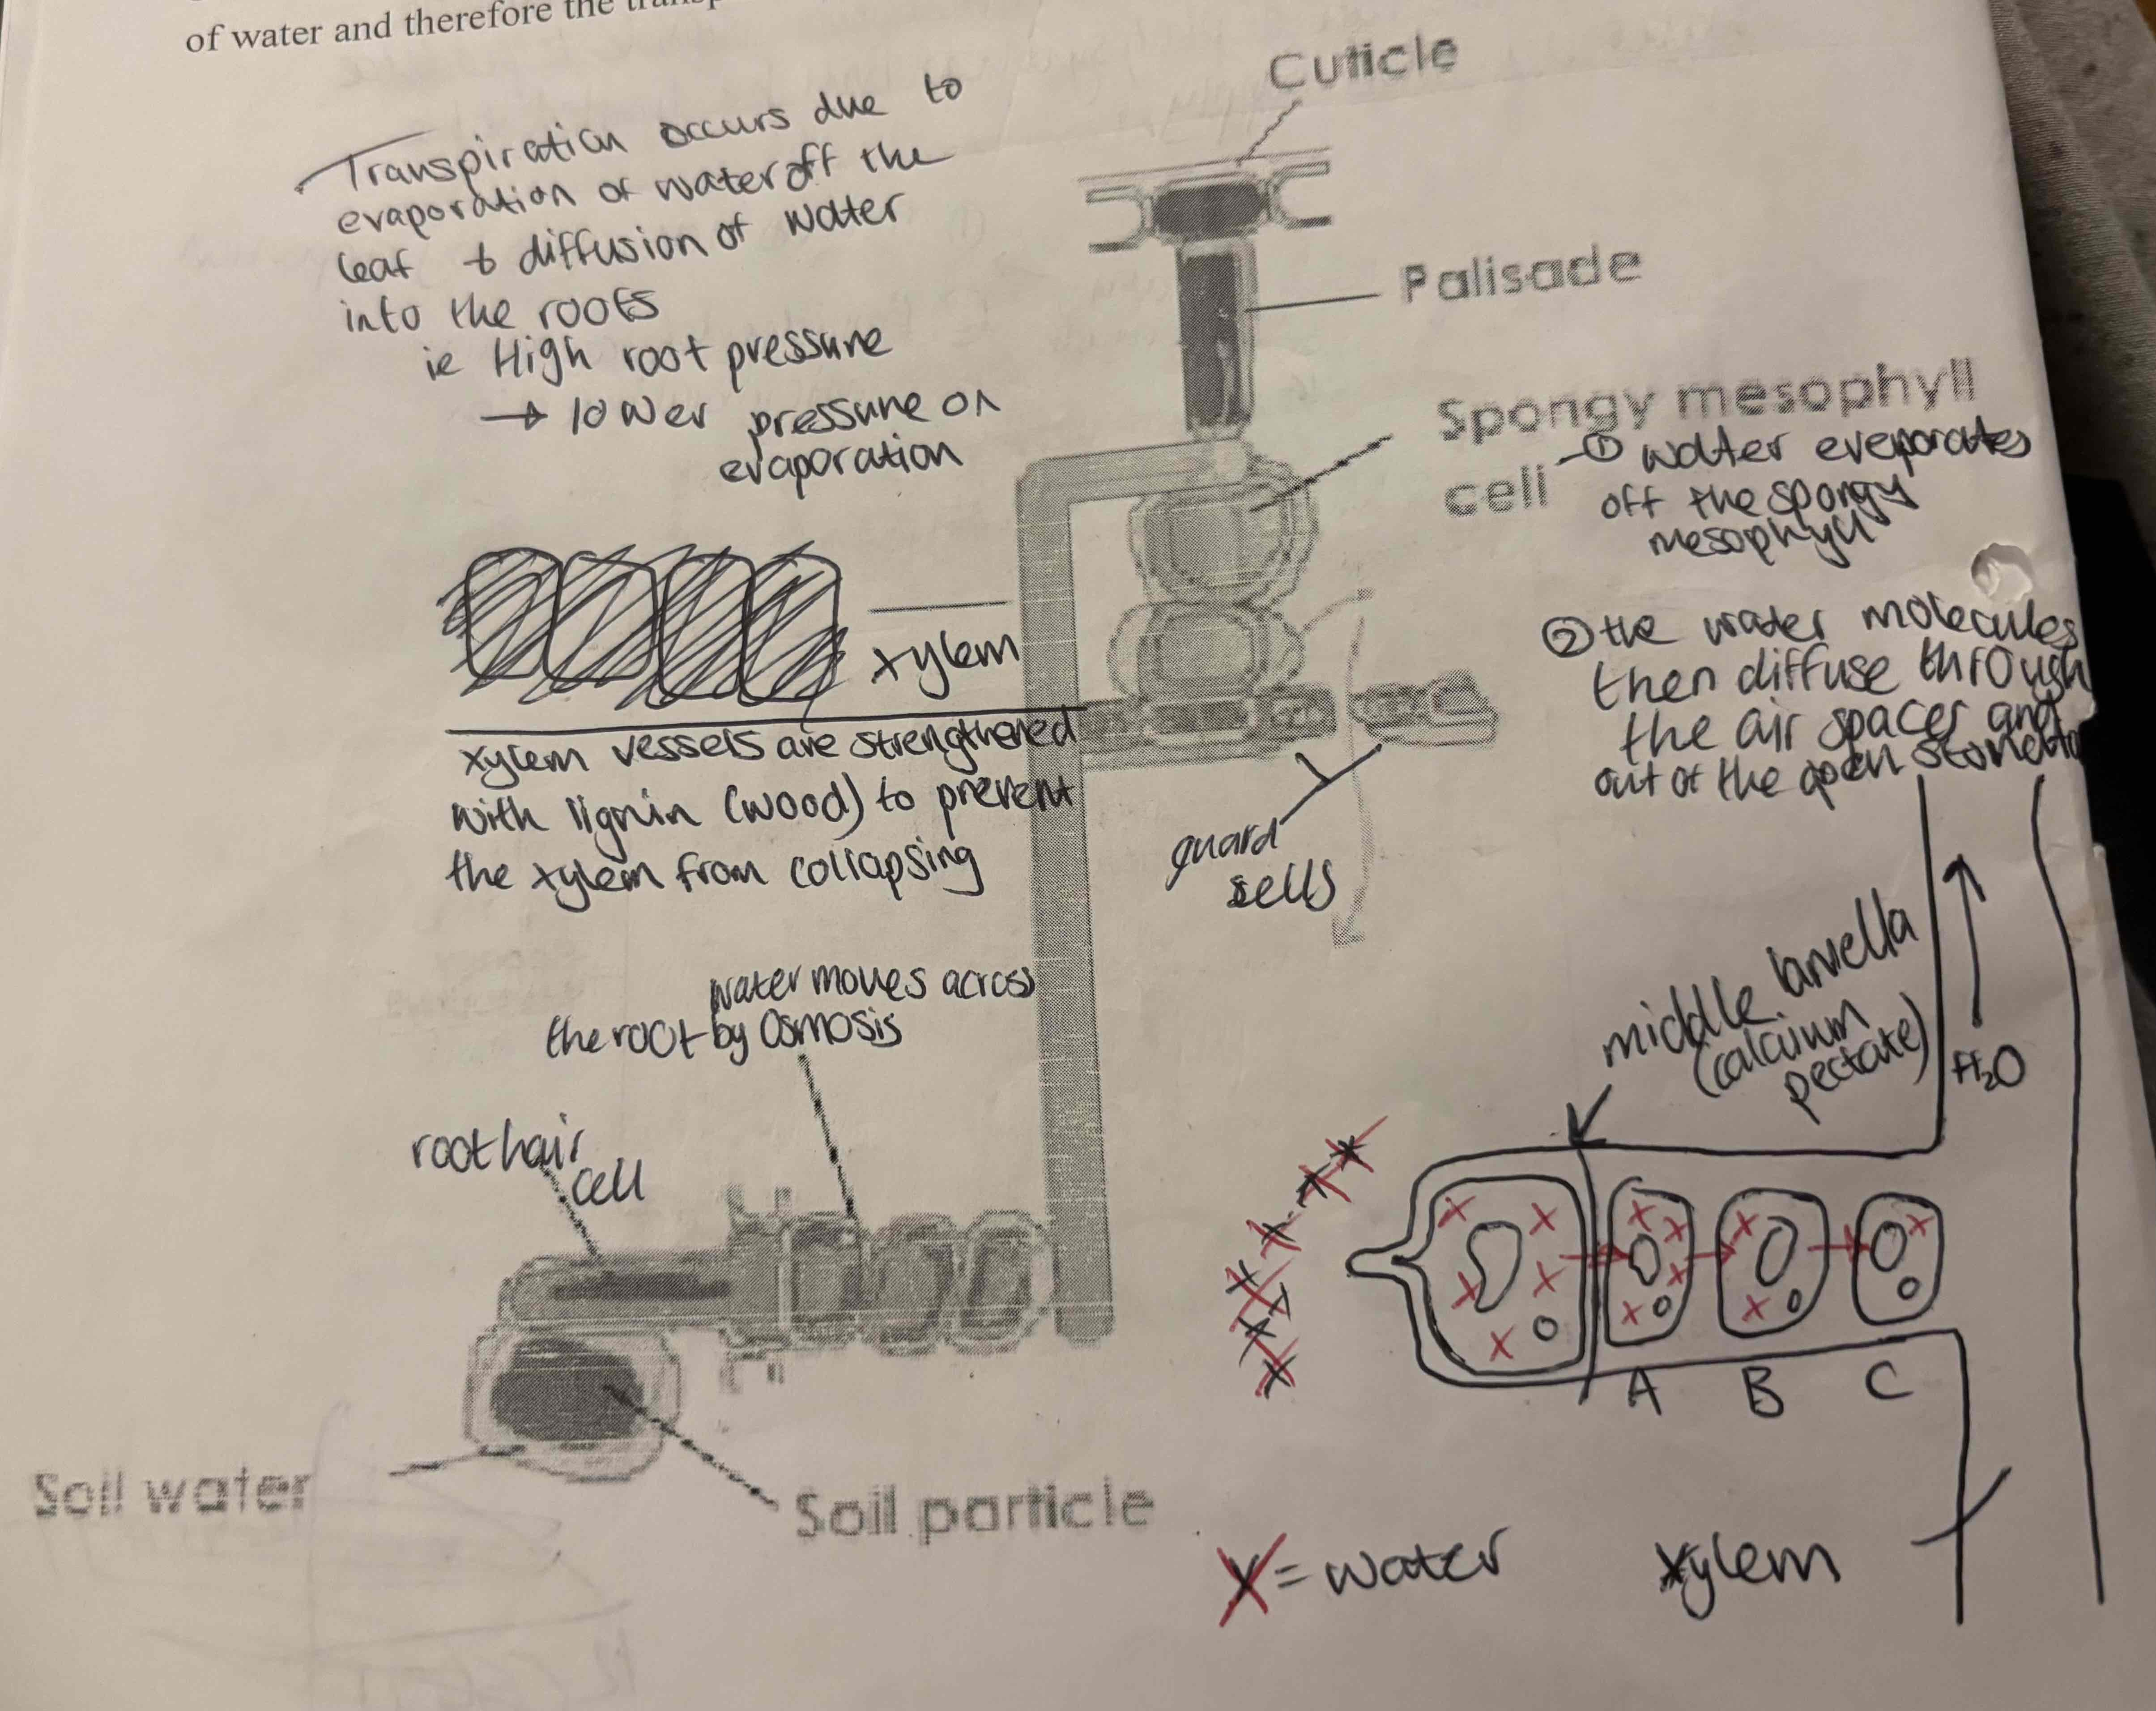 of water and therefore the
Transpiration occurs due to
evaporation of water off the
leaf & diffusion of water
into the roots
ie High root pressure
→ lower pressure on
evaporation
Cuticle
Palisade
Spongy mesophyll
cell
① water eveporates
off the spongy
mesophyll
② the water molecules
then diffuse through
the air spaces and
out of the open stomata
xylem
xylem vessels are strengthened
with lignin (wood) to prevent
the xylem from collapsing
guard
sells
water moves across
the root by osmosis
root hair
cell
Soil water
Soil particle
middle lamella
(calcium
pectate)
H₂O
A B C
X = water
xylem